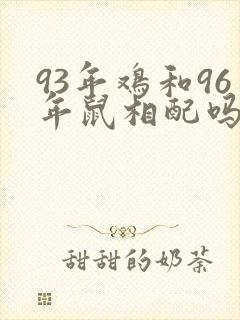 93年鸡和96
年鼠相配吗
甜甜的奶茶